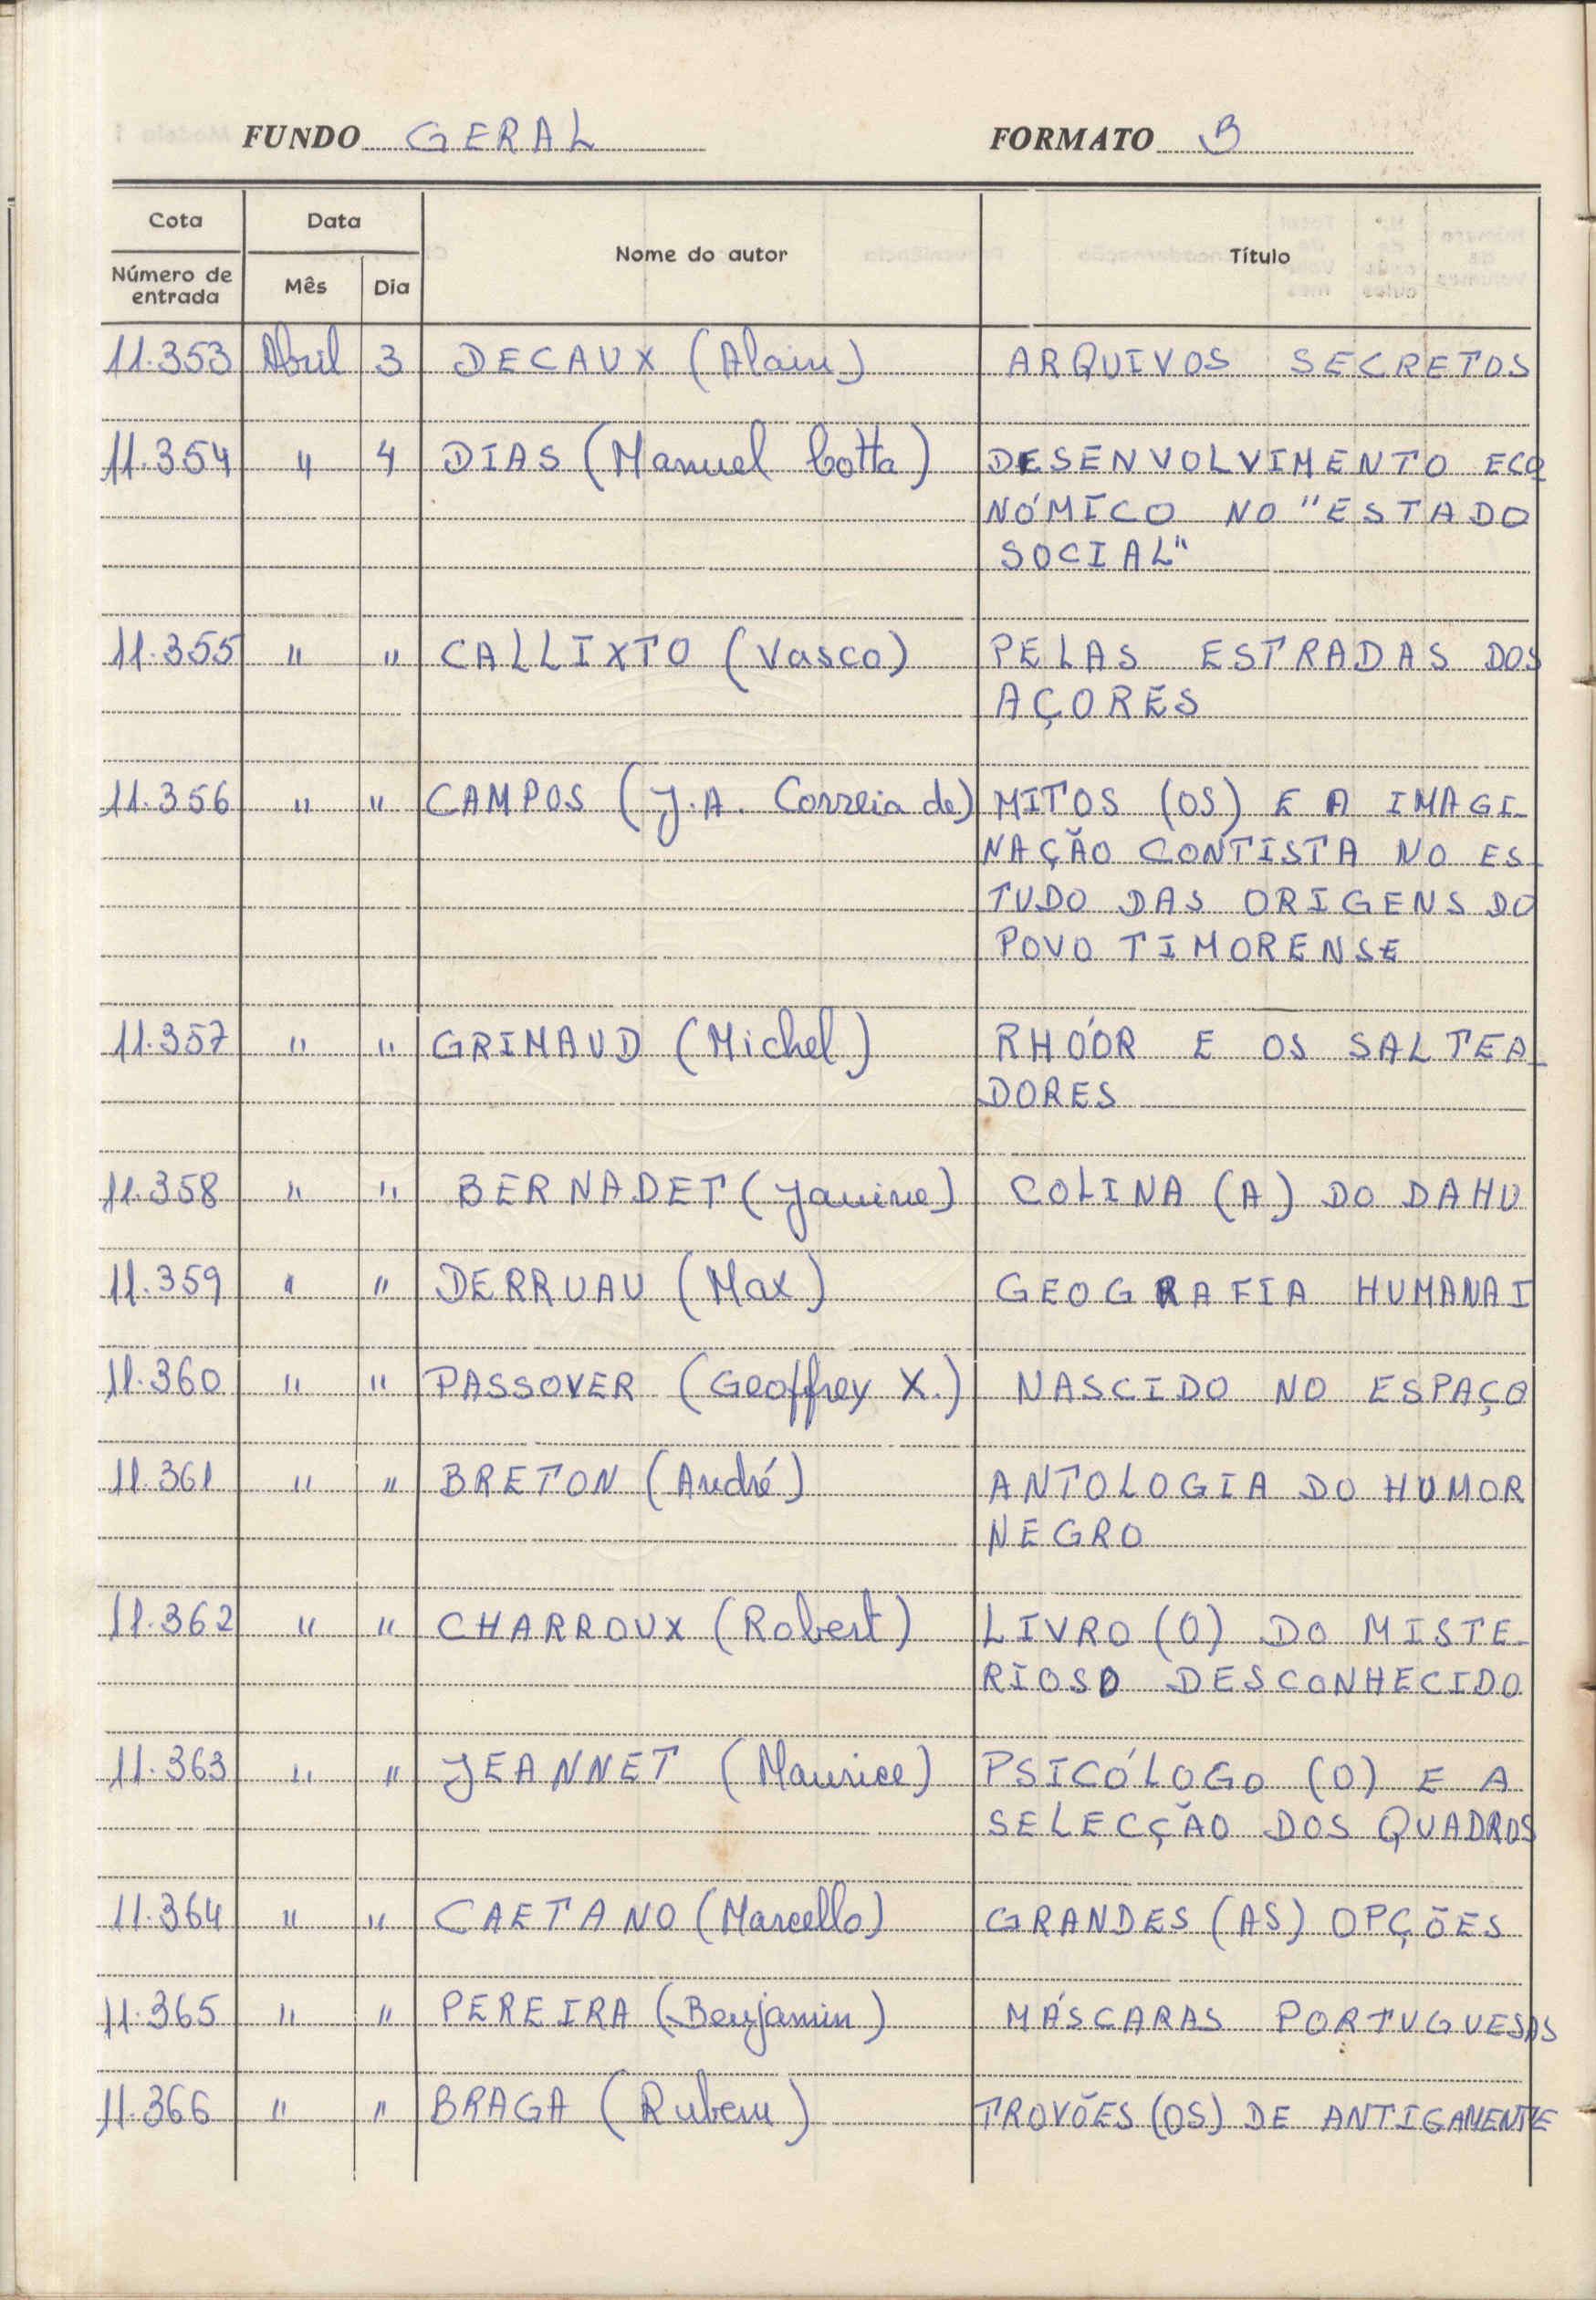 FUNDO GERAL FORMATO B
Cota Data Nome do autor Título
Número de entrada Mês Dia
11.353 Abril 3 DECAUX (Alain) ARQUIVOS SECRETOS
11.354 " 4 DIAS (Manuel Cotta) DESENVOLVIMENTO ECO
NÓMICO NO "ESTADO
SOCIAL"
11.355 " " CALLIXTO (Vasco) PELAS ESTRADAS DOS
AÇORES
11.356 " " CAMPOS (J.A. Correia de) MITOS (OS) E A IMAGI-
NAÇÃO CONTISTA NO ES-
TUDO DAS ORIGENS DO
POVO TIMORENSE
11.357 " " GRIMAUD (Michel) RHÓOR E OS SALTEA-
DORES
11.358 " " BERNADET (Janine) COLINA (A) DO DAHU
11.359 " " DERRUAU (Max) GEOGRAFIA HUMANA I
11.360 " " PASSOVER (Geoffrey X.) NASCIDO NO ESPAÇO
11.361 " " BRETON (André) ANTOLOGIA DO HUMOR
NEGRO
11.362 " " CHARROUX (Robert) LIVRO (O) DO MISTE-
RIOSO DESCONHECIDO
11.363 " " JEANNET (Maurice) PSICÓLOGO (O) E A
SELECÇÃO DOS QUADROS
11.364 " " CAETANO (Marcello) GRANDES (AS) OPÇÕES
11.365 " " PEREIRA (Benjamin) MÁSCARAS PORTUGUESAS
11.366 " " BRAGA (Rubem) TROVÕES (OS) DE ANTIGAMENTE